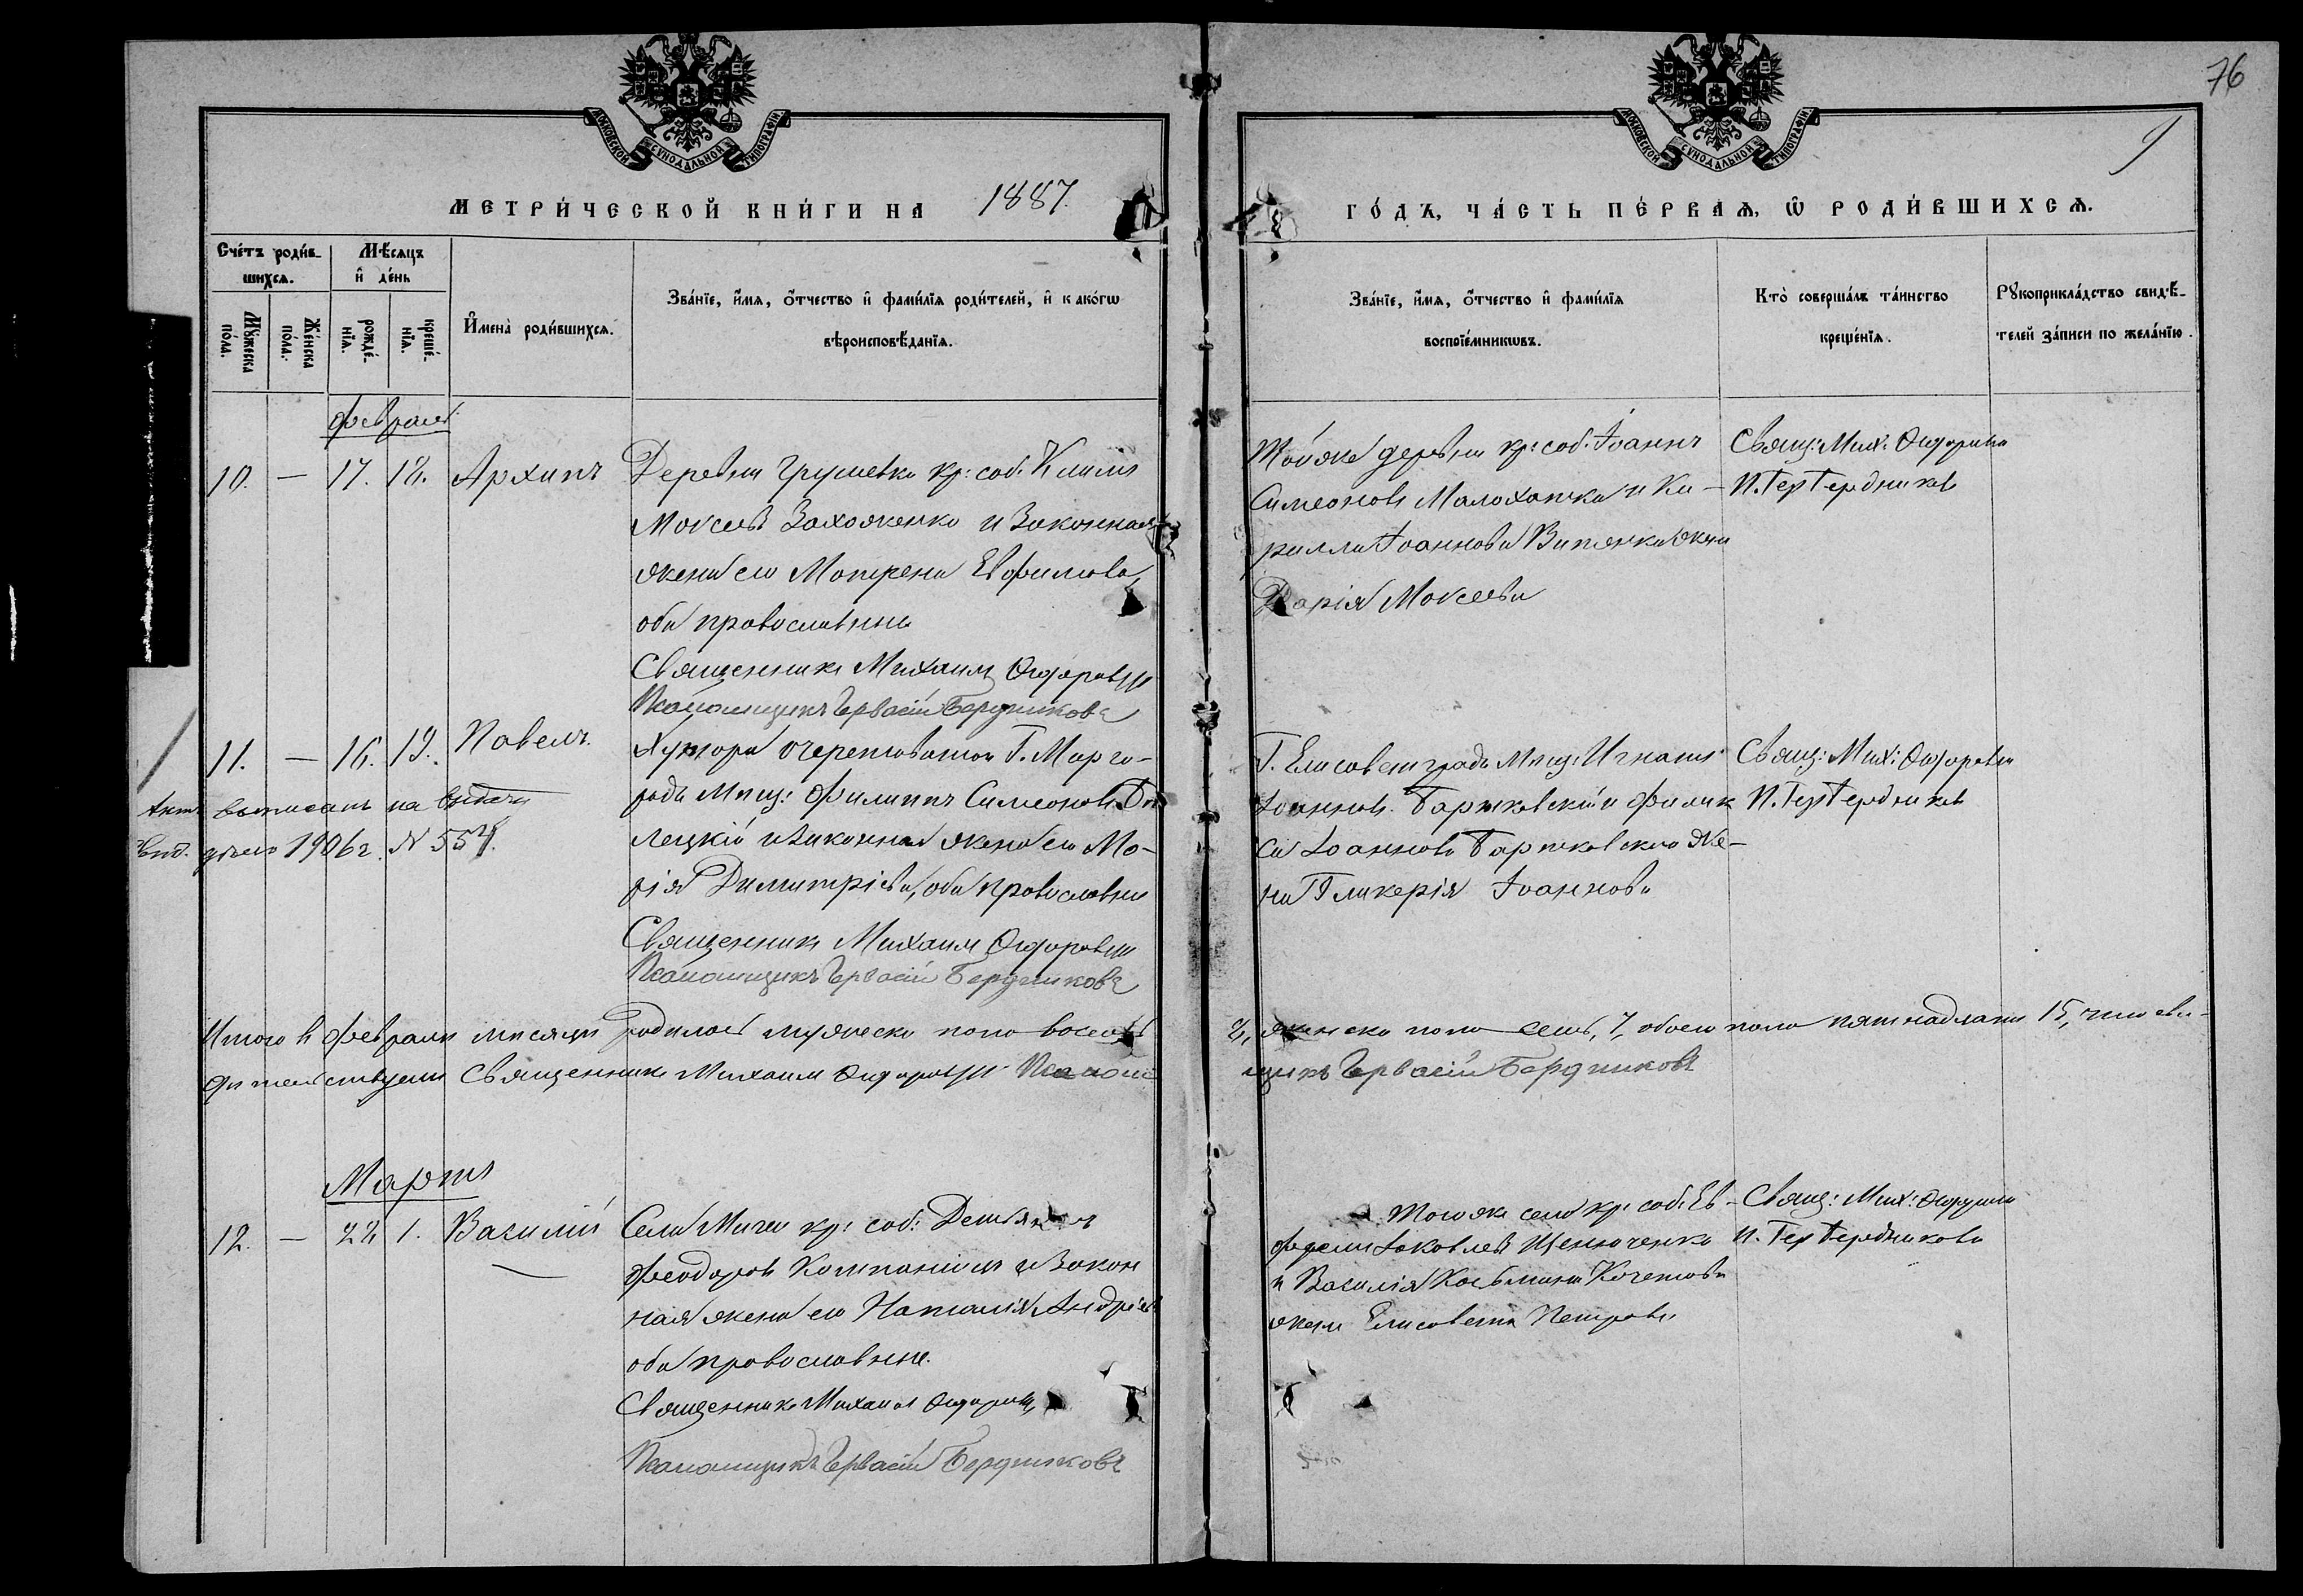 76
9
МОСКОВСКОЙ СѴНОДАЛЬНОЙ ТИПОГРАФІИ
МОСКОВСКОЙ СѴНОДАЛЬНОЙ ТИПОГРАФІИ
МЕТРИ́ЧЕСКОЙ КНИ́ГИ НА 1887.
ГО́ДЪ, ЧА́СТЬ ПЕ́РВАѦ, Ѿ РОДИ́ВШИХСѦ.
Счетъ роди́в-
шихсѧ.
Мꙋжеска
по́ла.
Же́нска
по́ла.
Мѣсѧцъ
и де́нь
рожде́-
нїѧ.
креще́-
нїѧ.
И҆мена̀ роди́вшихсѧ.
Зва́нїе, и҆́мѧ, о҆́тчество и҆ фами́лїѧ роди́телей, и҆ како́гѡ
вѣроисповѣ́данїѧ.
Зва́нїе, и҆́мѧ, о҆́тчество и҆ фами́лїѧ
воспрїе́мникѡвъ.
Кто̀ соверша́лъ та́инство
креще́нїѧ.
Рꙋкоприкла́дство свидѣ́-
телей за́писи по жела́нїю.
Февраль
10. — 17. 18. Архипъ
Деревни Грушевки кр: соб: Климъ
Моксеевъ Захоженко и Законная
жена его Матрена Евфимова,
оба православны
Священникъ Михаилъ
Псаломщикъ Гервасій Бердниковъ
Тойже деревни кр: соб: Іоаннъ
Симеоновъ Малохатка и Ки-
рилла Іоаннова жена
Дарія Моксеева
Свящ: Мих:
П. Гер Бердниковъ
11. — 16. 19. Павелъ.
Хутора Г. Мирго-
рода Мѣщ: Филиппъ Симеоновъ Би
лецкій и Законная жена его Ма-
рія Димитріева, оба православны
Священникъ Михаилъ
Псаломщикъ Гервасій Бердниковъ
Г. Елисаветграда Мѣщ: Игнатій
Іоанновъ Бартковскій и Филик
са Іоаннова Бартковскаго Же-
на Гликерія Іоаннова
Свящ: Мих:
П. Гер Бердниковъ
Актъ выписанъ на выдачу
1906 г. N 554.
Итого въ Февралѣ мѣсяцѣ родилось мужеска пола восемь
8, женска пола семь, 7, обоего пола пятнадцать 15, что сви-
дѣтельствуемъ Священникъ Михаилъ Псалом
щикъ Гервасій Бердниковъ
Мартъ
12. — 22 1. Василій
Села кр: соб:
Феодоровъ Компаніецъ и Закон
ная жена его Наталія Андріева
оба православные.
Священникъ Михаилъ
Псаломщикъ Гервасій Бердниковъ
Тогоже села кр: соб: Ев-
Іаковлевъ
и Василія Косьмина Кочетова
жена Елисавета Петрова
Свящ: Мих:
П. Гер Бердниковъ